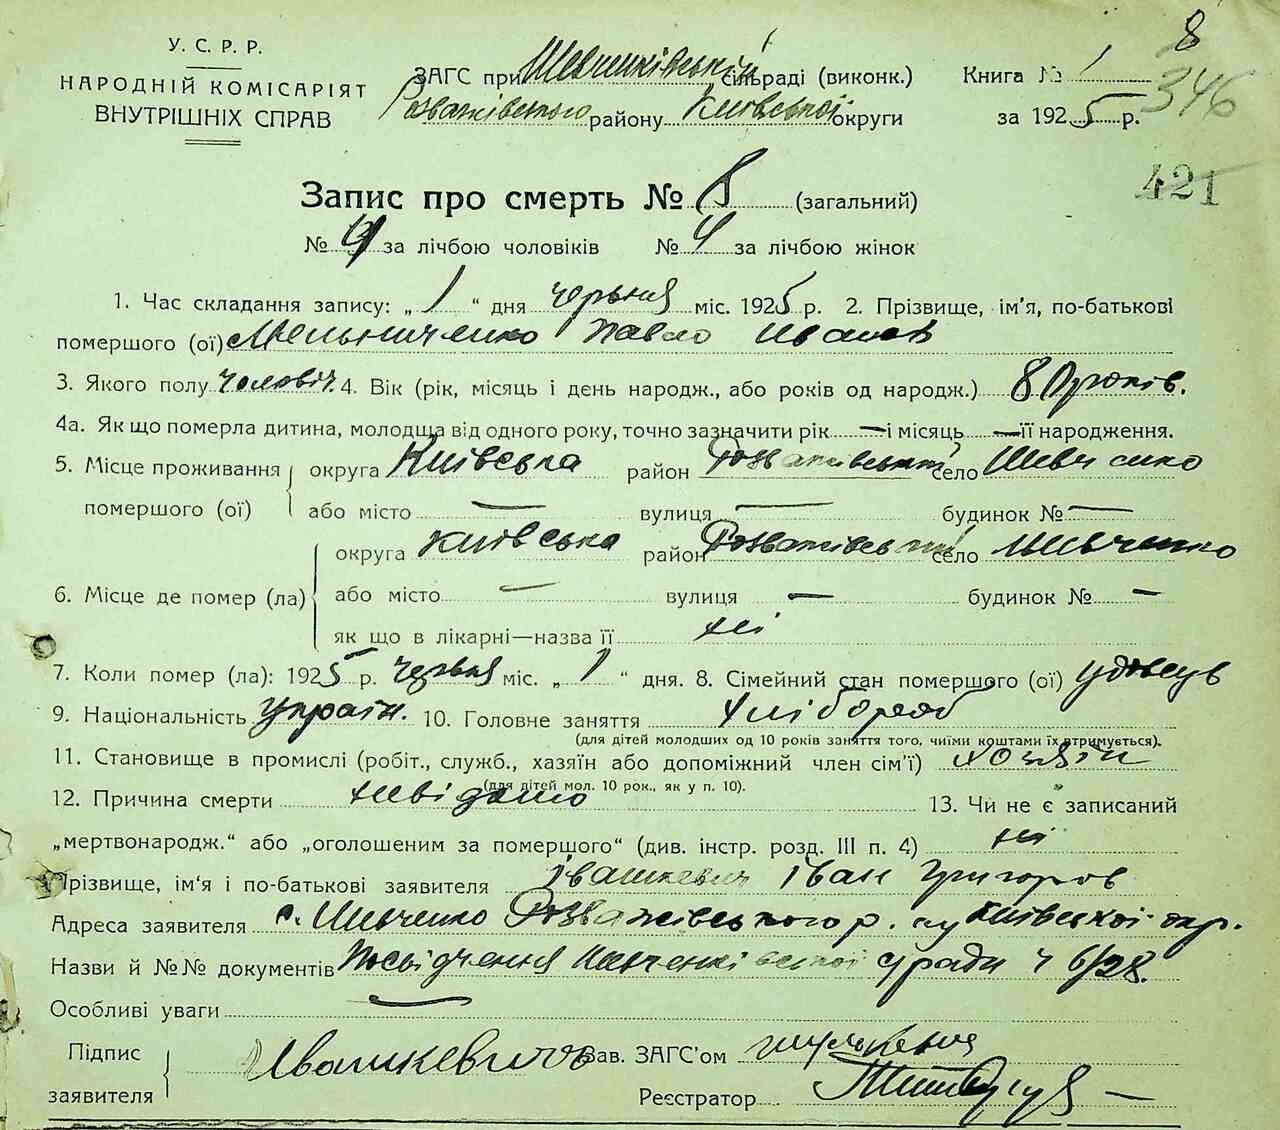 8
346
У. С. Р. Р.
НАРОДНІЙ КОМІСАРІЯТ
ВНУТРІШНІХ СПРАВ
ЗАГС при Шевченківській сільраді (виконк.)
Розважівського району Київської округи
Книга № 1
за 1925 р.
421
Запис про смерть № 8 (загальний)
№ 4 за лічбою чоловіків № 4 за лічбою жінок
1. Час складання запису: „ 1 “ дня червня міс. 1925 р. 2. Прізвище, ім’я, по-батькові
помершого (ої) Мельниченко Павло Іванов
3. Якого полу чоловіч. 4. Вік (рік, місяць і день народж., або років од народж.) 80 років.
4а. Як що померла дитина, молодша від одного року, точно зазначити рік — і місяць — її народження.
5. Місце проживання помершого (ої) округа Київська район Розважівський село Шевченко
або місто — вулиця — будинок № —
6. Місце де помер (ла) округа Київська район Розважівський село Шевченко
або місто — вулиця — будинок № —
як що в лікарні—назва її ні
7. Коли помер (ла): 1925 р. червня міс. „ 1 “ дня. 8. Сімейний стан помершого (ої) удовець
9. Національність Україн. 10. Головне заняття Хлібороб
(для дітей молодших од 10 років заняття того, чиїми коштами їх втримується).
11. Становище в промислі (робіт., служб., хазяїн або допоміжний член сім’ї) хозяїн
(для дітей мол. 10 рок., як у п. 10).
12. Причина смерти невідомо 13. Чи не є записаний
„мертвонародж.“ або „оголошеним за помершого“ (див. інстр. розд. III п. 4) ні
Прізвище, ім’я і по-батькові заявителя Івашкевич Іван Григоров
Адреса заявителя с. Шевченко Розважівського р. Київської окр.
Назви й №№ документів Посвідчення с/ради ч 6/28.
Особливі уваги —
Підпис заявителя Івашкевич Зав. ЗАГС’ом
Реєстратор